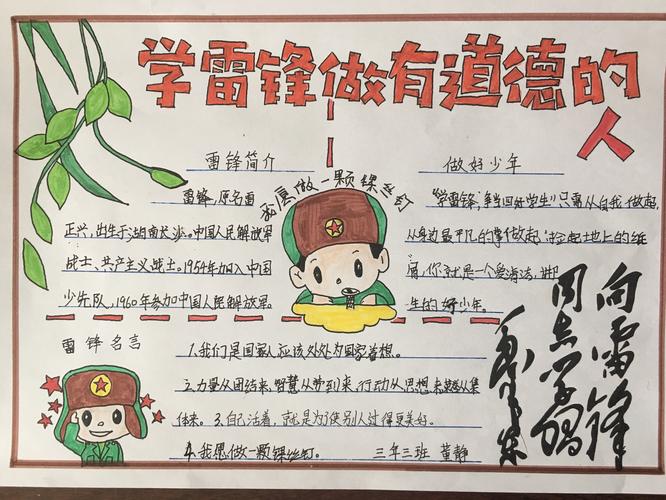 学雷锋做有道德的
人
雷锋简介
雷锋,原名雷
正兴,出生于湖南长沙。中国人民解放军
战士、共产主义战士。1954年加入中国
少先队,1960年参加中国人民解放军。
我愿做一颗螺丝钉
做好少年
"学雷锋,争当四好学生"只需从自我做起,
从身边最平凡的事做起,捡起地上的纸
屑,你就是一个爱清洁、讲卫
生的好少年。
雷锋名言
1.我们是国家人,应该处处为国家着想。
2.力量从团结来,智慧从劳动来,行动从思想来,荣誉从集
体来。3.自己活着,就是为了使别人过得更美好。
4.我愿做一颗螺丝钉。
三年三班 董静
向雷锋
同志学习
毛泽东